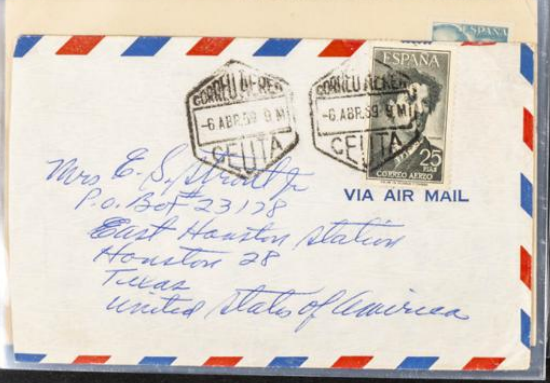 ESPAÑA
CORREO AEREO
-6 ABR.59 9 M
CEUTA
CORREO AEREO
-6 ABR.59 9 M
CEUTA
ESPAÑA
25
PTAS
CORREO AEREO
VIA AIR MAIL
Mrs E. S. Jr
P.O. Box 23128
East Houston Station
Houston 28
Texas
United States of America